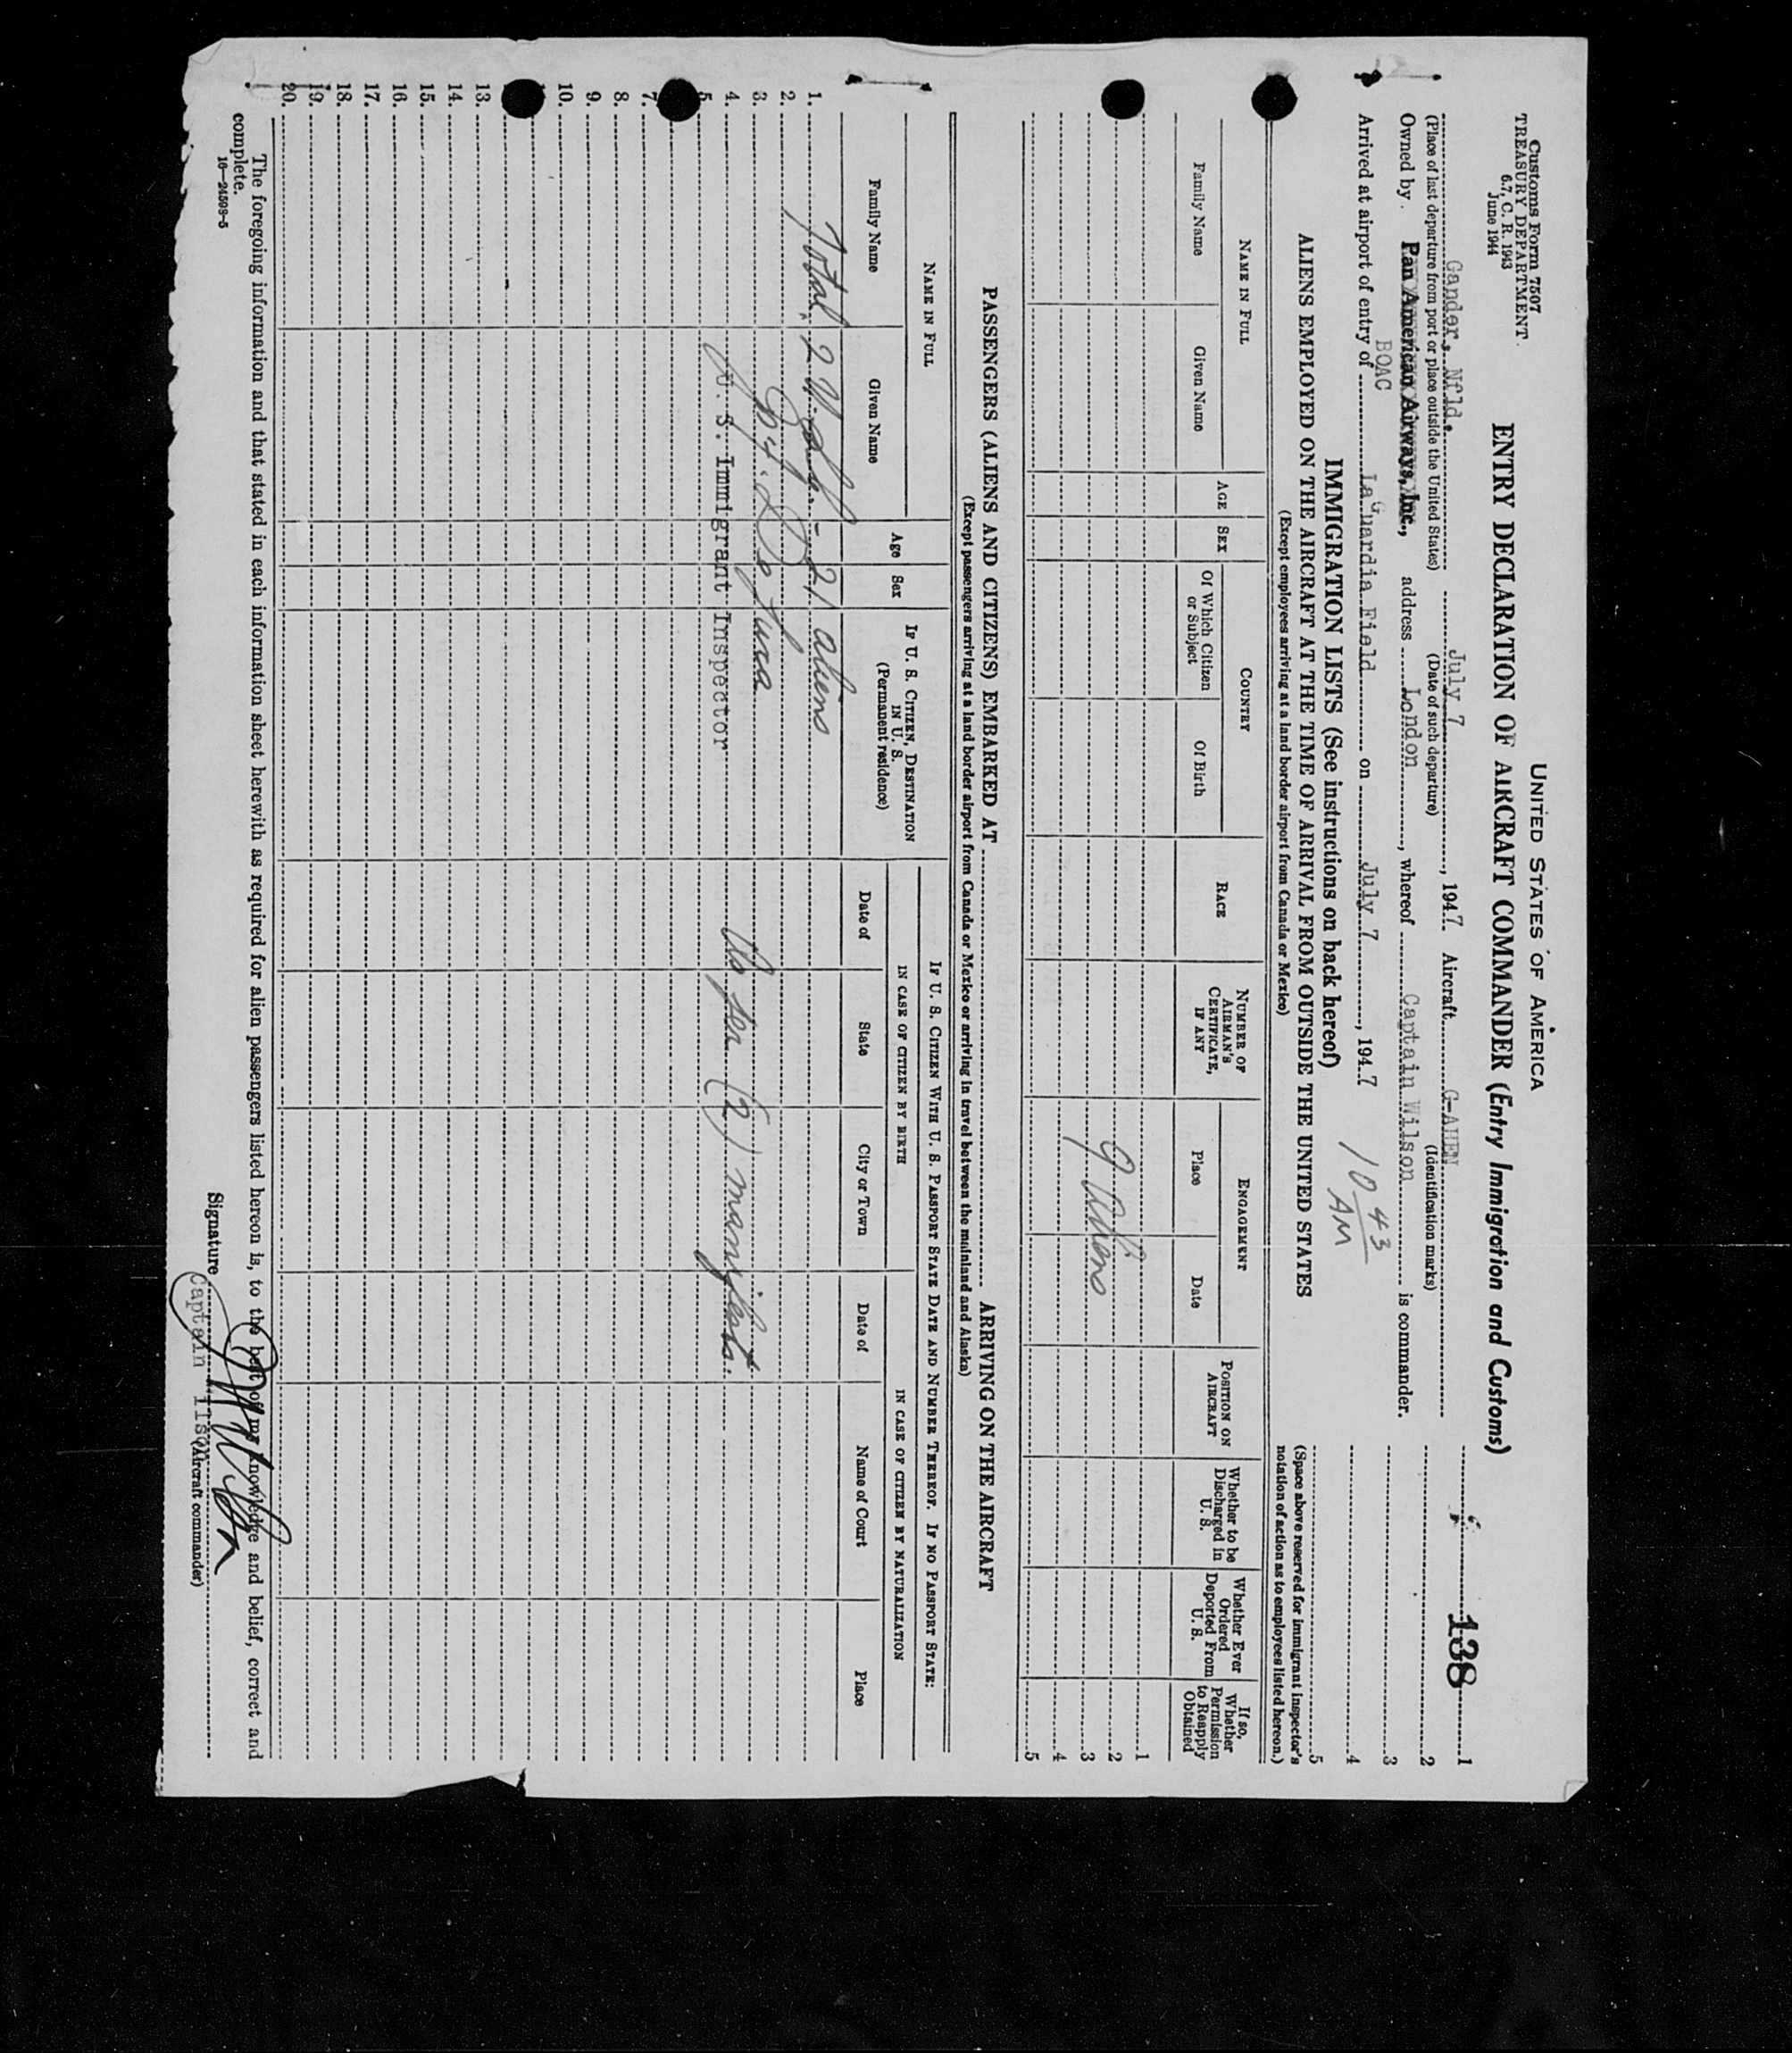 Customs Form 7507
TREASURY DEPARTMENT
6.7, C. R. 1943
June 1944
UNITED STATES OF AMERICA
ENTRY DECLARATION OF AIRCRAFT COMMANDER (Entry Immigration and Customs)
138
Gander, Nfld. July 7, 1947. Aircraft G-AHEN 1
(Place of last departure from port or place outside the United States) (Date of such departure) (Identification marks)
2
Owned by Pan American Airways, Inc., address London, whereof Captain Wilson is commander.
BOAC
3
Arrived at airport of entry of LaGuardia Field on July 7, 1947 10 43 AM
4
IMMIGRATION LISTS (See instructions on back hereof)
5
ALIENS EMPLOYED ON THE AIRCRAFT AT THE TIME OF ARRIVAL FROM OUTSIDE THE UNITED STATES
(Except employees arriving at a land border airport from Canada or Mexico)
(Space above reserved for immigrant inspector's
notation of action as to employees listed hereon.)
NAME IN FULL
Family Name
Given Name
AGE
SEX
COUNTRY
Of Which Citizen
or Subject
Of Birth
RACE
NUMBER OF
AIRMAN'S
CERTIFICATE,
IF ANY
ENGAGEMENT
Place
Date
POSITION ON
AIRCRAFT
Whether to be
Discharged in
U. S.
Whether Ever
Ordered
Deported From
U. S.
If so,
Whether
Permission
to Reapply
Obtained
1
2
9 Aliens
3
4
5
PASSENGERS (ALIENS AND CITIZENS) EMBARKED AT ARRIVING ON THE AIRCRAFT
(Except passengers arriving at a land border airport from Canada or Mexico or arriving in travel between the mainland and Alaska)
NAME IN FULL
Family Name
Given Name
Age
Sex
IF U. S. CITIZEN, DESTINATION
IN U. S.
(Permanent residence)
IF U. S. CITIZEN WITH U. S. PASSPORT STATE DATE AND NUMBER THEREOF. IF NO PASSPORT STATE:
IN CASE OF CITIZEN BY BIRTH
Date of
State
City or Town
IN CASE OF CITIZEN BY NATURALIZATION
Date of
Name of Court
Place
1. Total 2 - 21 aliens
2.
3.
4. U. S. Immigrant Inspector As per (2) manifests.
5.
7.
8.
9.
10.
13.
14.
15.
16.
17.
18.
19.
20.
The foregoing information and that stated in each information sheet herewith as required for alien passengers listed hereon is, to the best of my knowledge and belief, correct and
complete.
16—24598-5
Signature
Captain ilson
(Aircraft commander)